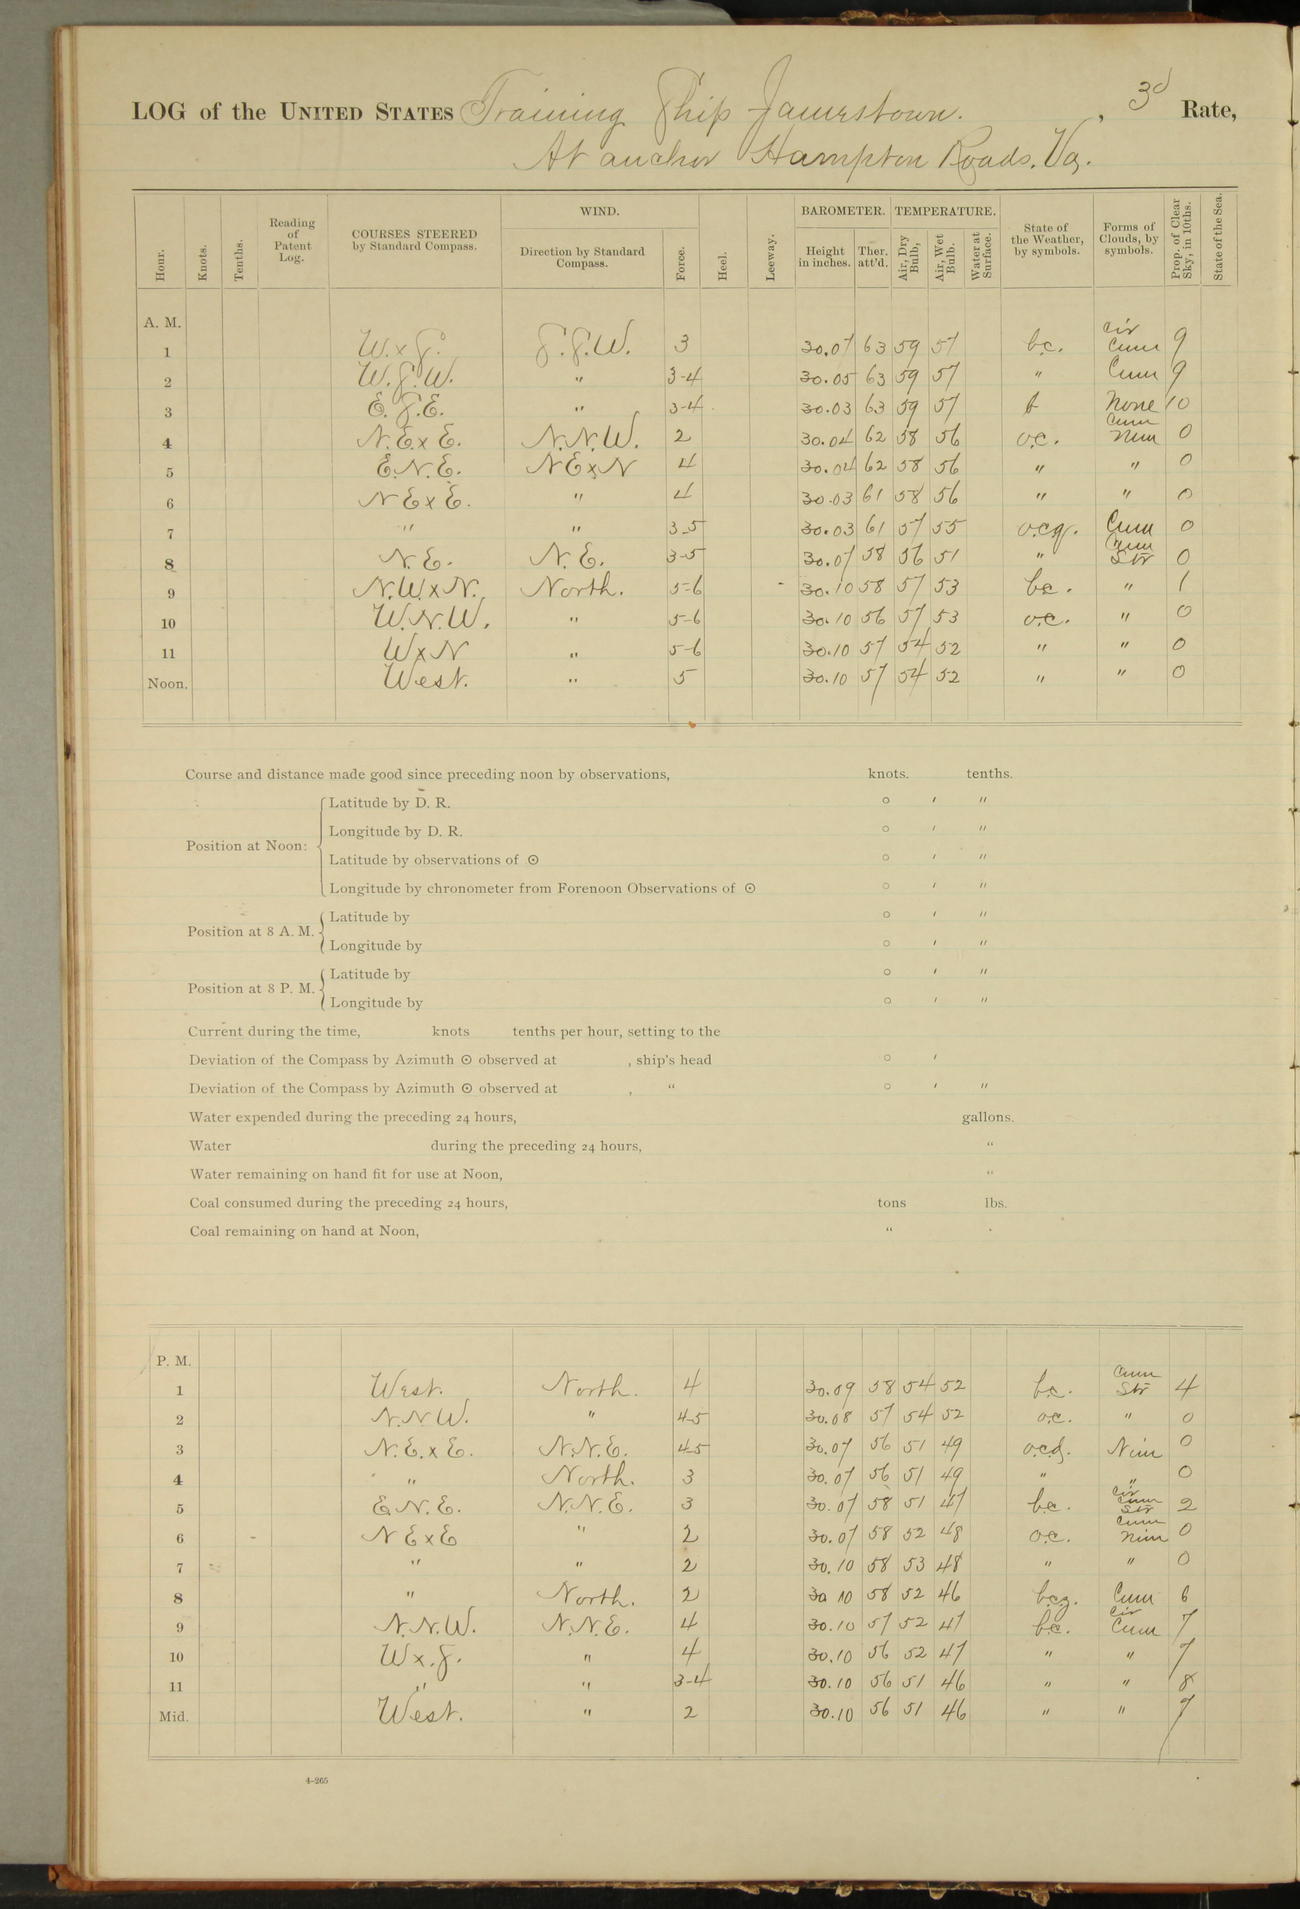 LOG of the UNITED STATES Training Ship Jamestown. , 3d Rate,
At anchor Hampton Roads, Va.
Hour. Knots. Tenths. Reading of Patent Log. COURSES STEERED by Standard Compass. WIND. Direction by Standard Compass. Force. Heel. Leeway. BAROMETER. Height in inches. Ther. att'd. TEMPERATURE. Air, Dry Bulb, Air, Wet Bulb. Water at Surface. State of the Weather, by symbols. Forms of Clouds, by symbols. Prop. of Clear Sky, in 10ths. State of the Sea.
A. M.
1 W. x S. S.S.W. 3 30.07 63 59 57 b.c. Cir Cum 9
2 W.S.W. " 3-4 30.05 63 59 57 " Cum 9
3 E. S.E. " 3-4 30.03 63 59 57 b None 10
4 N.E x E. N.N.W. 2 30.04 62 58 56 o.c. Cum Nim 0
5 E.N.E. N E x N 4 30.04 62 58 56 " " 0
6 N E x E. " 4 30.03 61 58 56 " " 0
7 " " 3-5 30.03 61 57 55 o.c.q. Cum 0
8 N.E. N.E. 3-5 30.07 58 56 51 " Cum Str 0
9 N.W. x N. North. 5-6 30.10 58 57 53 b.c. " 1
10 W.N.W. " 5-6 30.10 56 57 53 o.c. " 0
11 W x N " 5-6 30.10 57 54 52 " " 0
Noon. West. " 5 30.10 57 54 52 " " 0
Course and distance made good since preceding noon by observations, knots. tenths.
Position at Noon: Latitude by D. R. ° ′ ″
Longitude by D. R. ° ′ ″
Latitude by observations of ☉ ° ′ ″
Longitude by chronometer from Forenoon Observations of ☉ ° ′ ″
Position at 8 A. M. Latitude by ° ′ ″
Longitude by ° ′ ″
Position at 8 P. M. Latitude by ° ′ ″
Longitude by ° ′ ″
Current during the time, knots tenths per hour, setting to the
Deviation of the Compass by Azimuth ☉ observed at , ship's head ° ′
Deviation of the Compass by Azimuth ☉ observed at , " ° ′ ″
Water expended during the preceding 24 hours, gallons.
Water during the preceding 24 hours, "
Water remaining on hand fit for use at Noon, "
Coal consumed during the preceding 24 hours, tons lbs.
Coal remaining on hand at Noon, "
P. M.
1 West. North. 4 30.09 58 54 52 b.c. Cum Str 4
2 N.N W. " 4-5 30.08 57 54 52 o.c. " 0
3 N.E. x E. N.N.E. 4-5 30.07 56 51 49 o.c.d. Nim 0
4 " North. 3 30.07 56 51 49 " " 0
5 E.N.E. N.N.E. 3 30.07 58 51 47 b.c. Cir Cum Str 2
6 N E x E " 2 30.07 58 52 48 o.c. Cum Nim 0
7 " " 2 30.10 58 53 48 " " 0
8 " North. 2 30 10 58 52 46 Cum 6
9 N.N.W. N.N.E. 4 30.10 57 52 47 b.c. Cir Cum 7
10 W x. S. " 4 30.10 56 52 47 " " 7
11 " " 3-4 30.10 56 51 46 " " 8
Mid. West. " 2 30.10 56 51 46 " " 9
4-265